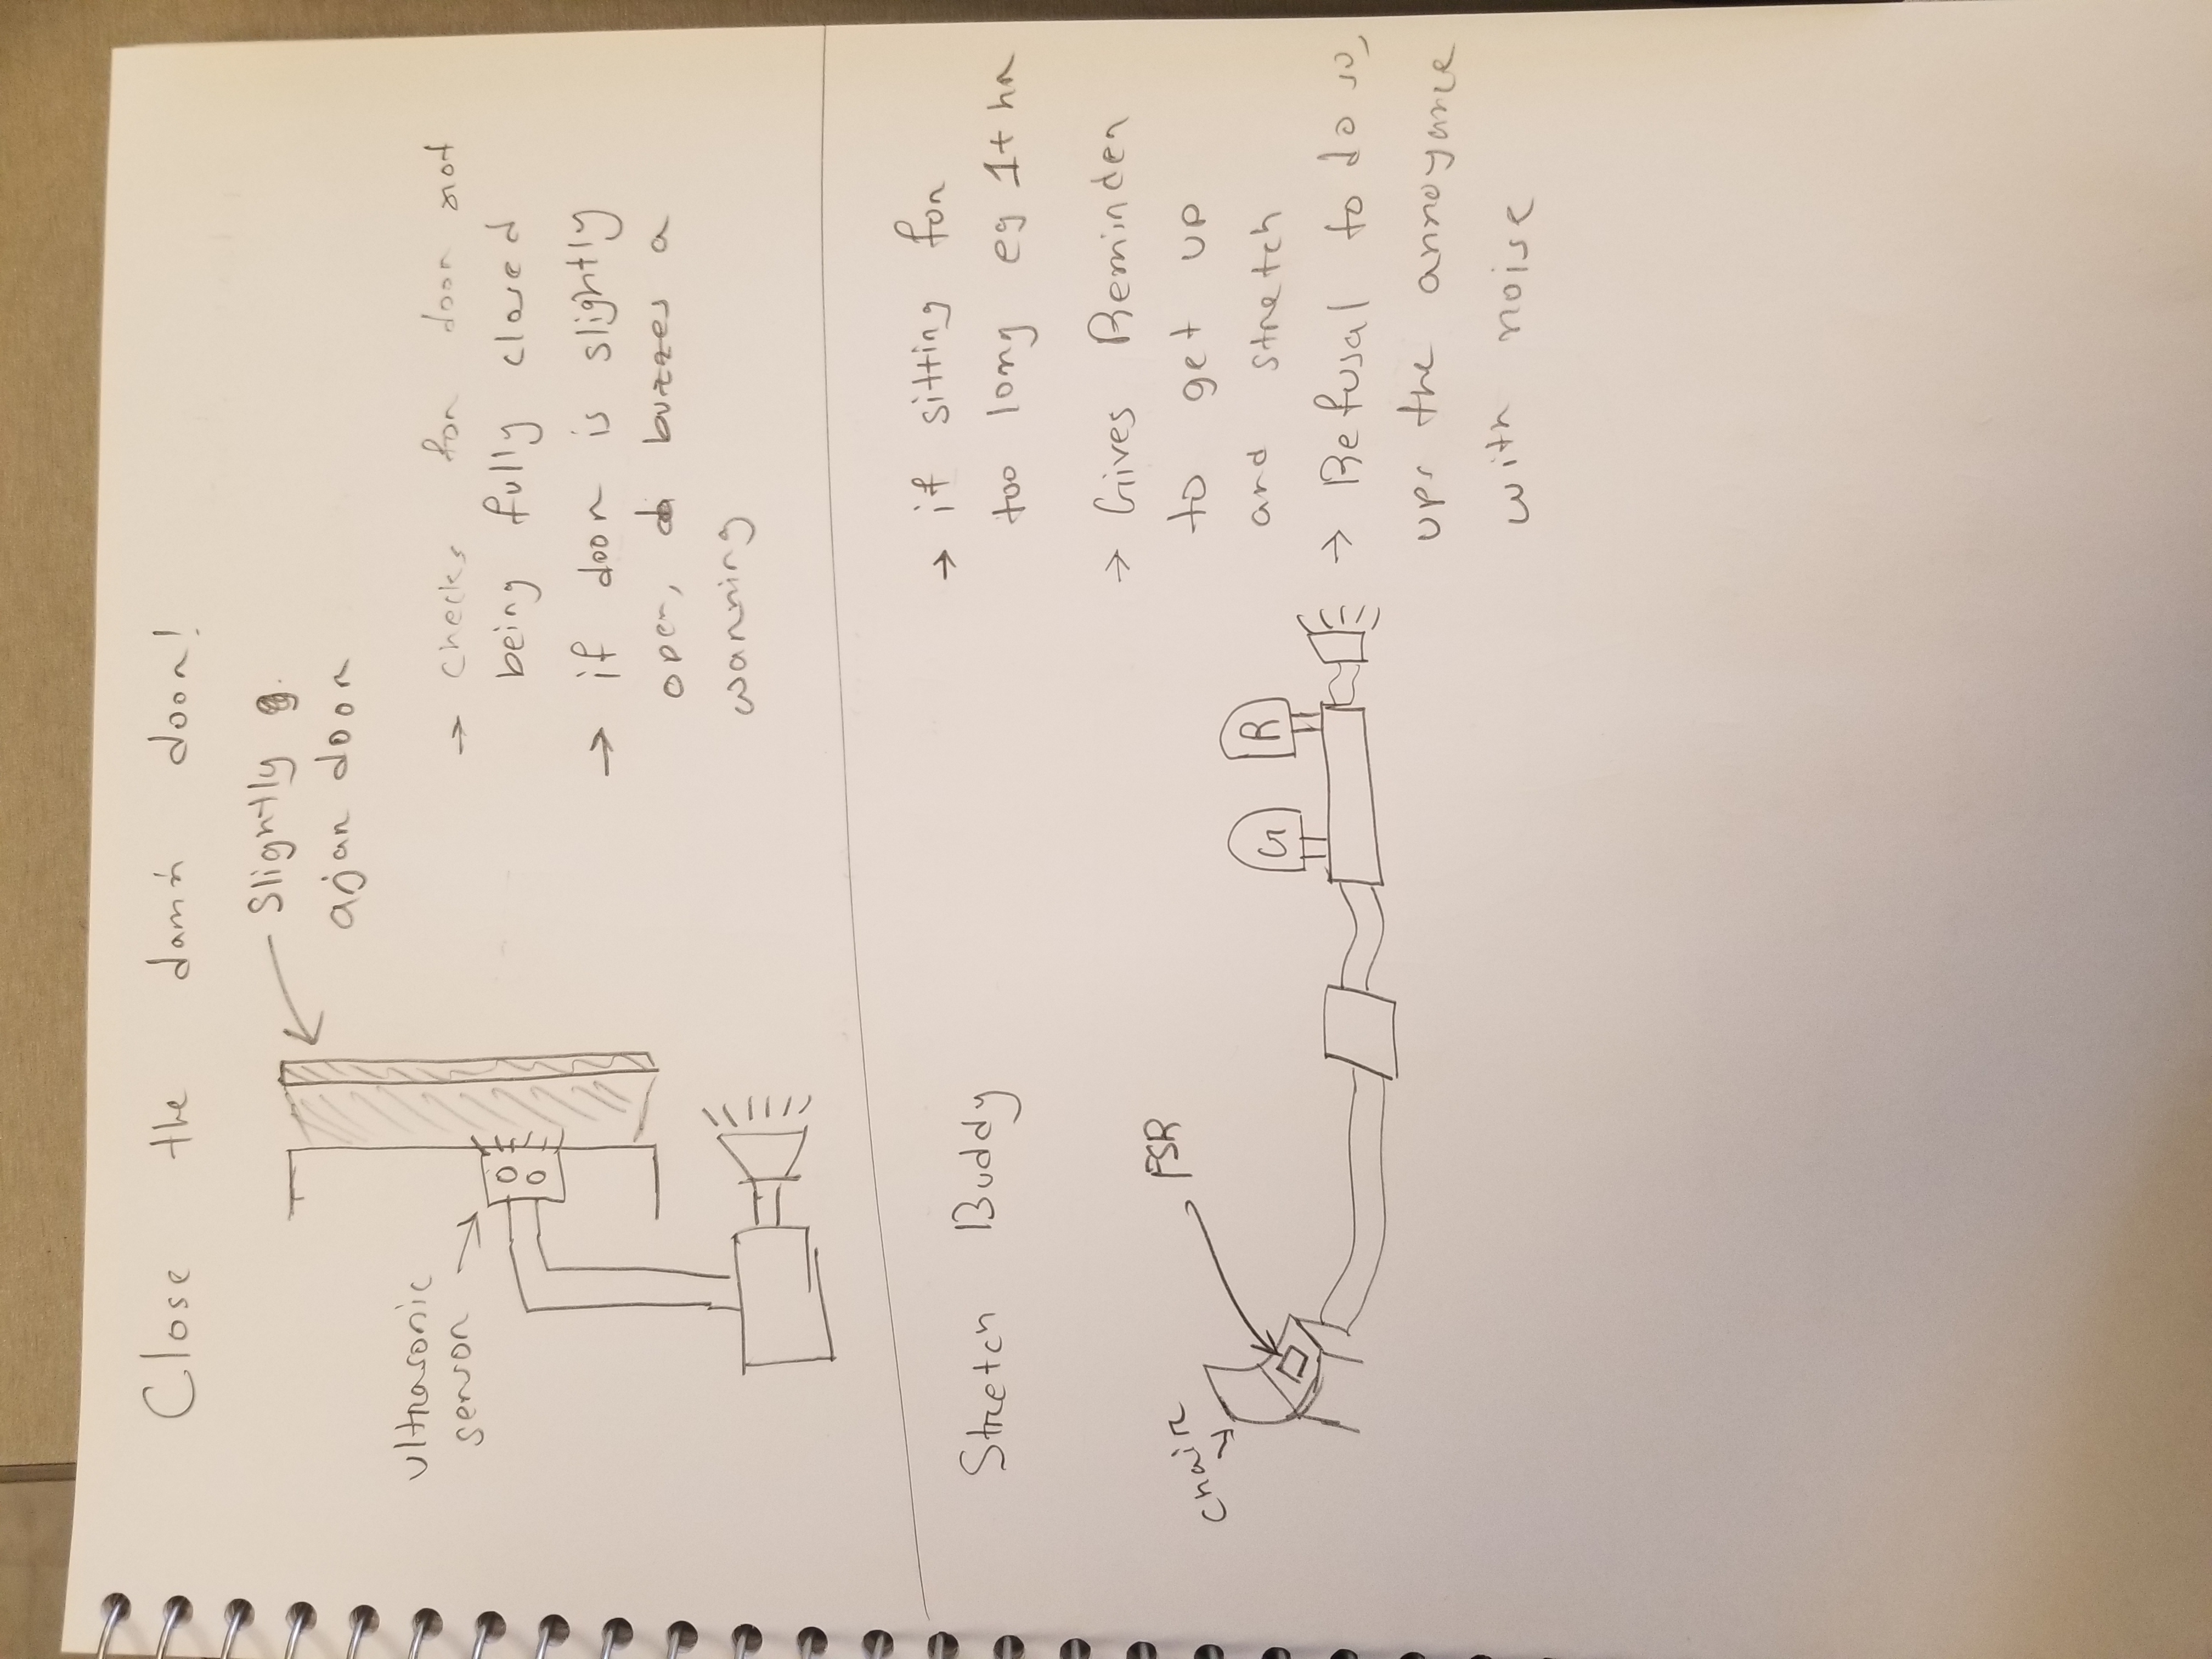 Close the damn door!
Slightly
ajar door
ultrasonic
sensor
→ checks for door not
being fully closed
→ if door is slightly
open, buzzes a
warning
Stretch Buddy
→ if sitting for
too long eg 1+ hr
→ Gives Reminder
to get up
and stretch
→ Refusal to do so,
ups the annoyance
with noise
chair
FSR
G
R